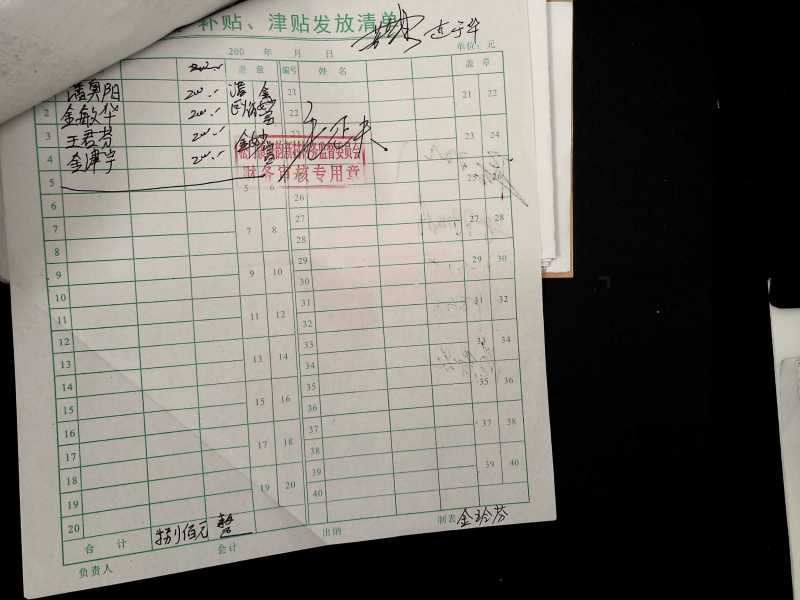 补贴、津贴发放清单
200 年 月 日 单位：元
盖章 编号 姓名 盖章
潘奠阳 200.- 21 21 22
2 金敏华 200.- 22
3 王君芬 200.- 23 24
4 金津宇 200.-
财务审核专用章
5 5 6 25 26
6 26
7 7 8 27 27 28
8 28
9 9 10 29 29 30
10 30
11 11 12 31 31 32
12 32
13 13 14 33 33 34
14 34
15 15 16 35 35 36
16 36
17 17 18 37 37 38
18 38
19 19 20 39 39 40
20 40
合计 捌佰元 整
负责人 会计 出纳 制表 金玲芬